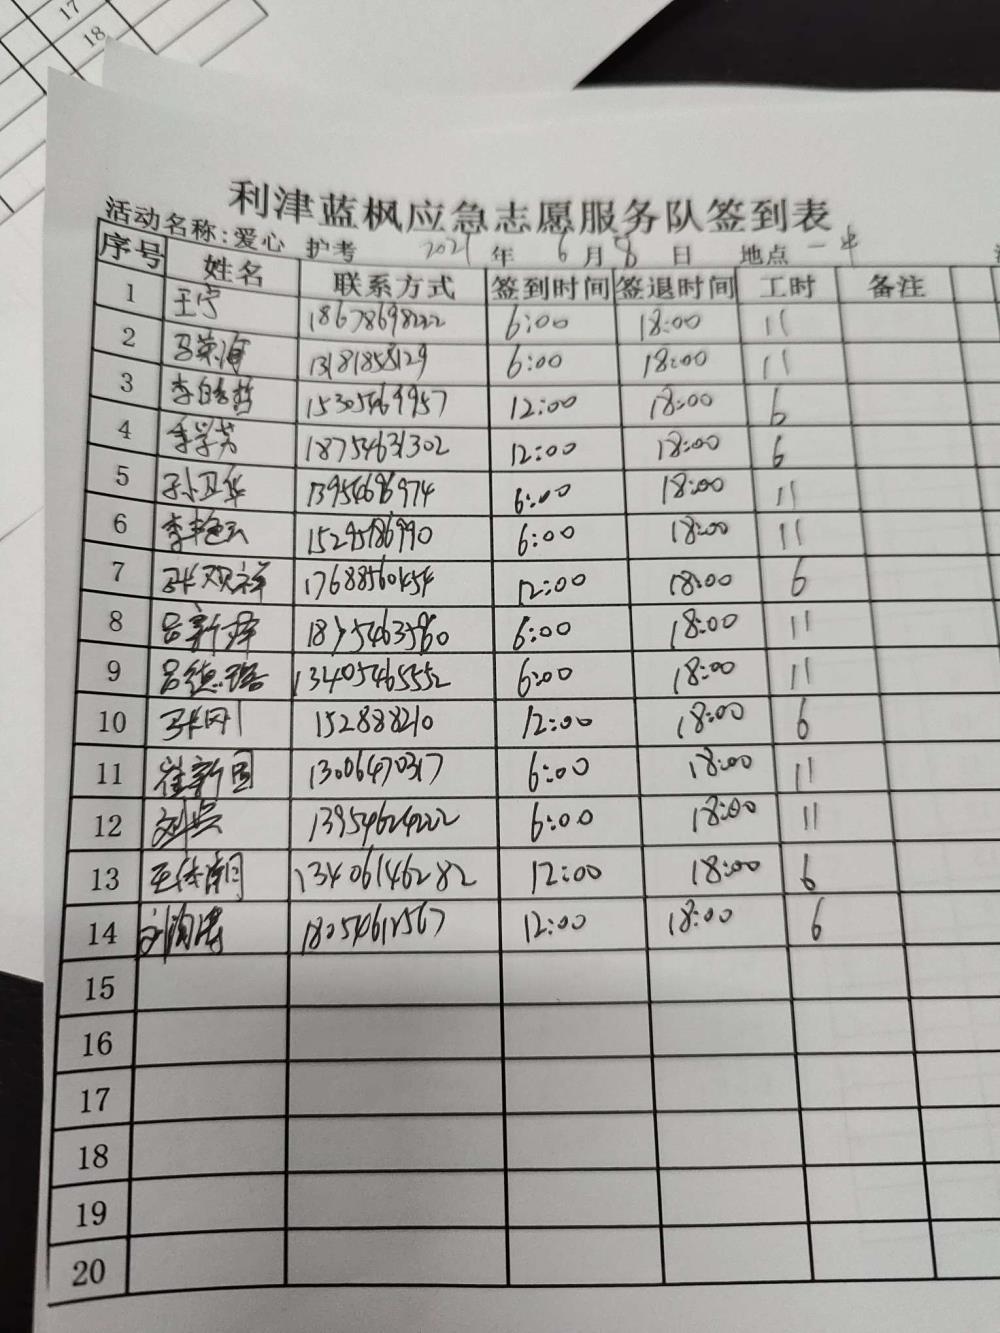 17
18
利津蓝枫应急志愿服务队签到表
活动名称:爱心 护考 2021 年 6 月 8 日 地点 一中
序号 姓名 联系方式 签到时间 签退时间 工时 备注
1 王宁 18678698222 6:00 18:00 11
2 13181858129 6:00 18:00 11
3 15305469957 12:00 18:00 6
4 李学芳 18754631302 12:00 18:00 6
5 孙卫华 13954696974 6:00 18:00 11
6 李艳云 15295186990 6:00 18:00 11
7 张观祥 17688560454 12:00 18:00 6
8 吕新婷 18754635960 6:00 18:00 11
9 吕德璐 13405465552 6:00 18:00 11
10 张刚 152888210 12:00 18:00 6
11 崔新国 13006470317 6:00 18:00 11
12 刘兵 13954624222 6:00 18:00 11
13 13406146282 12:00 18:00 6
14 18054612567 12:00 18:00 6
15
16
17
18
19
20